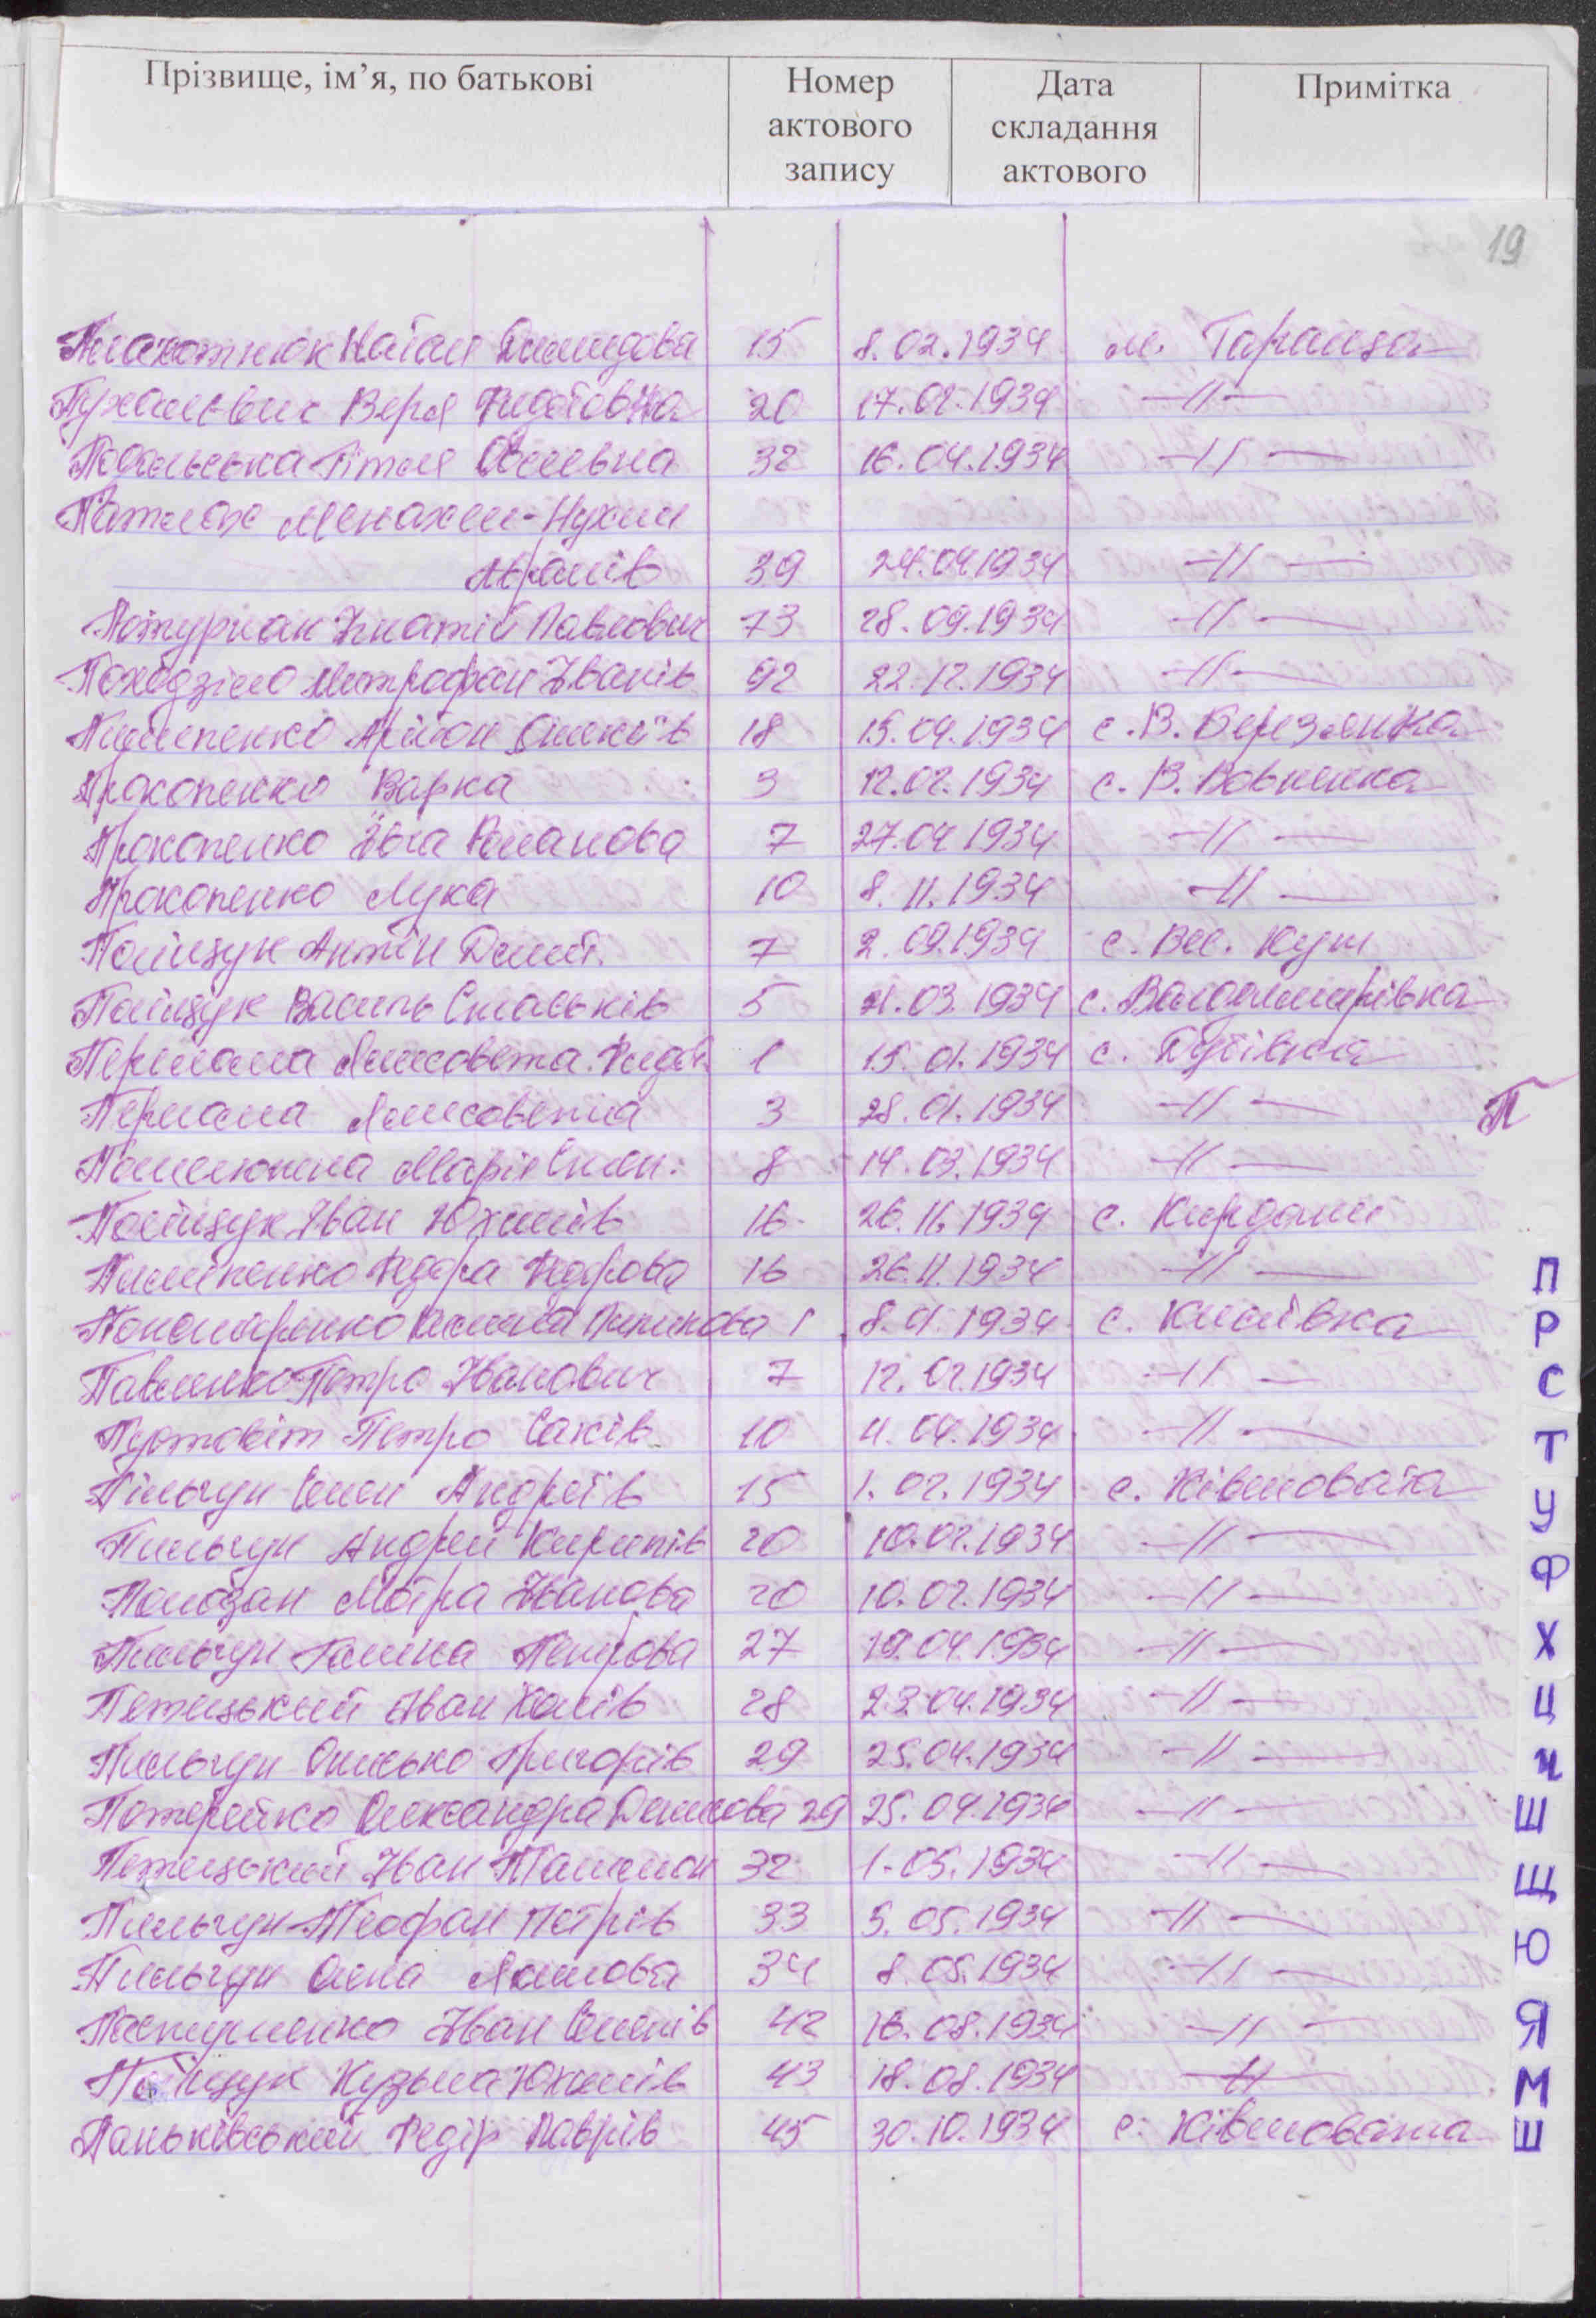 Прізвище, ім'я, по батькові Номер актового запису Дата складання актового Примітка
19
Плахотнюк Натал Демидова 15 8.02.1934 м. Тараща
Вера Федотовна 20 17.02.1934 -//-
Подольська Гітля 32 16.04.1934 -//-
Патлах Менахем-Нухим
Абрамів 39 24.04.1934 -//-
Потурнак Ігнатій Павлович 73 28.09.1934 -//-
Походзіло Митрофан Іванів 92 22.12.1934 -//-
Пилипенко Олексіїв 18 15.04.1934 с. В. Березянка
Прокопенко Варка 3 12.02.1934 с. В. Вовнянка
Прокопенко Івга Романова 7 27.04.1934 -//-
Прокопенко Лука 10 8.11.1934 -//-
Поліщук Антін Демит. 7 2.09.1934 с. Вес. Кут
Поліщук Василь Стаськів 5 21.03.1934 с. Володимирівка
Перлама Лисовета Федор. 1 15.01.1934 с. Дубівка
Перлама Лисовета 3 28.01.1934 -//-
П
Марія Силен. 8 14.03.1934 -//-
Поліщук Іван Юхимів 16 26.11.1934 с. Кирдани
Пилипенко Федора Федорова 16 26.11.1934 -//-
Пономаренко Пилипова 1 8.01.1934 с. Кислівка
Павленко Петро Іванович 7 12.02.1934 -//-
Пустовіт Петро Саків 10 4.04.1934 -//-
Пільгун Семен Андреїв 15 1.02.1934 с. Ківшовата
Пильгун Андрей Кирилів 20 10.02.1934 -//-
Мотра Іванова 20 10.02.1934 -//-
Пильгун Галина Петрова 27 19.04.1934 -//-
Петецький Іван 28 23.04.1934 -//-
Пильгун Онисько Григорів 29 25.04.1934 -//-
Потерейко Олександра Денисова 29 25.04.1934 -//-
Петецький Іван 32 1.05.1934 -//-
Пильгун Теофан Петрів 33 5.05.1934 -//-
Пильгун Олена Якимова 34 8.05.1934 -//-
Іван Семенів 42 16.08.1934 -//-
Поліщук Кузьма Юхимів 43 18.08.1934 -//-
Паньківський Федір Лаврів 45 30.10.1934 с. Ківшовата
П
Р
С
Т
У
Ф
Х
Ц
Ч
Ш
Щ
Ю
Я
М
Ш